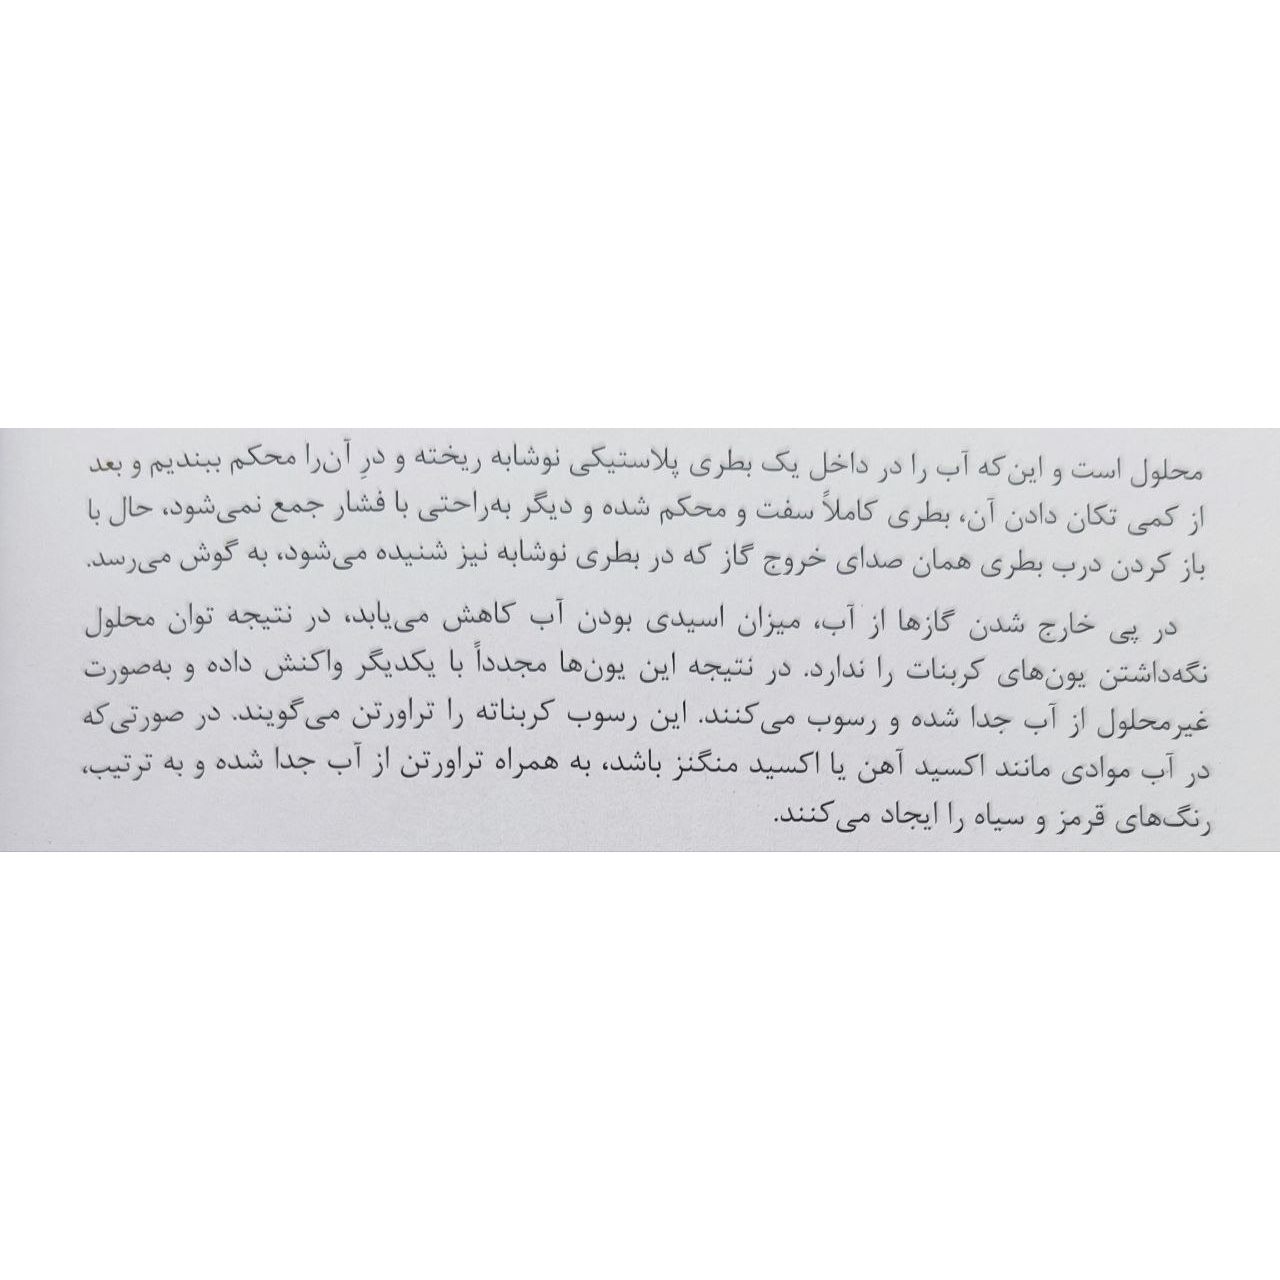 محلول است و این‌که آب را در داخل یک بطری پلاستیکی نوشابه ریخته و درِ آن‌را محکم ببندیم و بعد
از کمی تکان دادن آن، بطری کاملاً سفت و محکم شده و دیگر به‌راحتی با فشار جمع نمی‌شود، حال با
باز کردن درب بطری همان صدای خروج گاز که در بطری نوشابه نیز شنیده می‌شود، به گوش می‌رسد.
در پی خارج شدن گازها از آب، میزان اسیدی بودن آب کاهش می‌یابد، در نتیجه توان محلول
نگه‌داشتن یون‌های کربنات را ندارد. در نتیجه این یون‌ها مجدداً با یکدیگر واکنش داده و به‌صورت
غیرمحلول از آب جدا شده و رسوب می‌کنند. این رسوب کربناته را تراورتن می‌گویند. در صورتی‌که
در آب موادی مانند اکسید آهن یا اکسید منگنز باشد، به همراه تراورتن از آب جدا شده و به ترتیب،
رنگ‌های قرمز و سیاه را ایجاد می‌کنند.